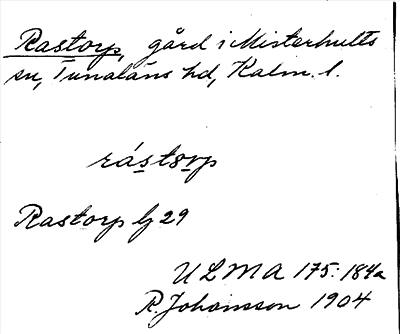 Rastorp, gård i Misterhults
sn, Tunaläns hd, Kalm. l.
rástorp
Rastorp lj 29
ULMA 175:184a
R. Johansson 1904